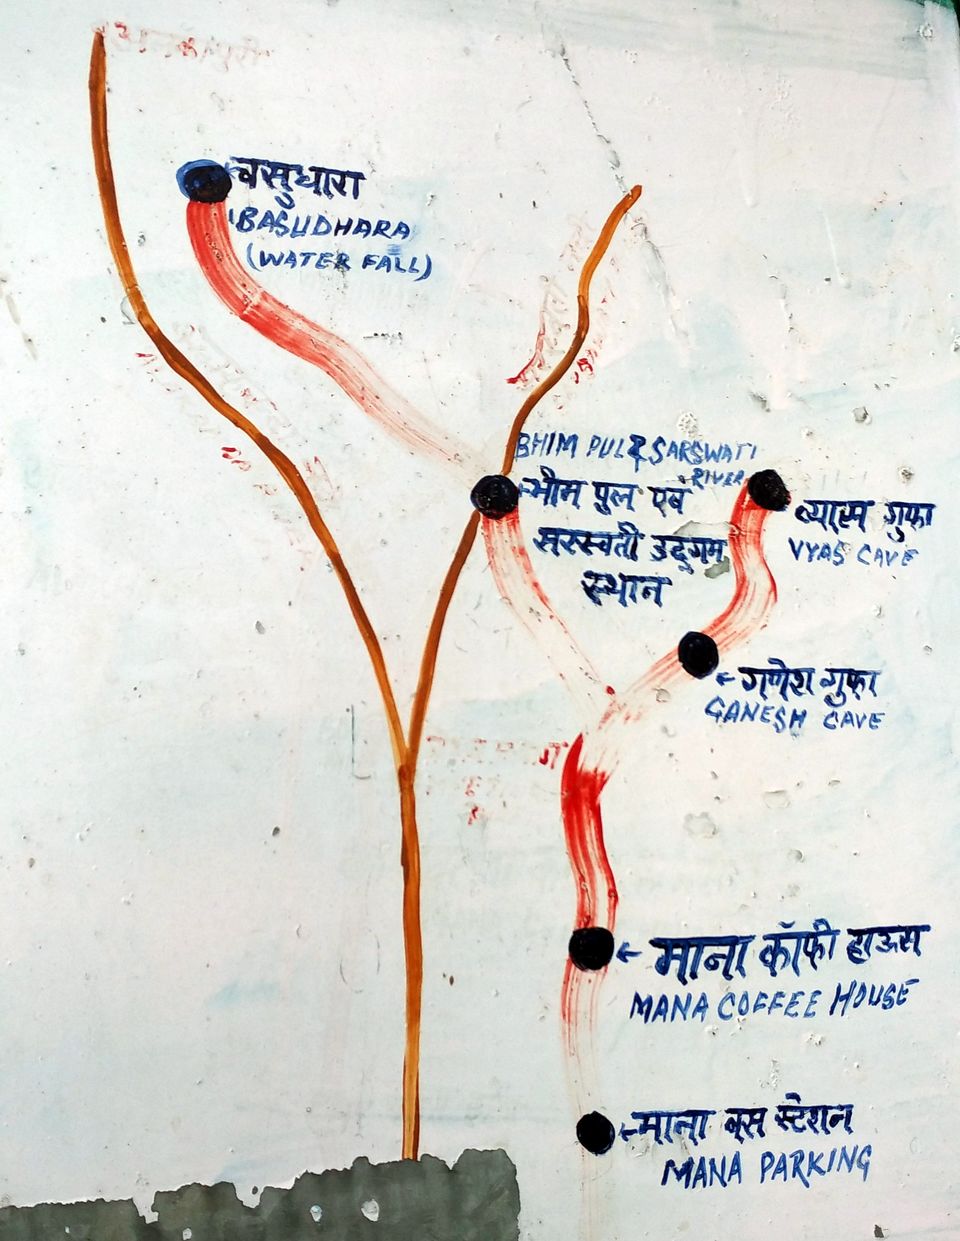 वसुधारा
BASUDHARA
(WATER FALL)
BHIM PUL & SARSWATI
RIVER
भीम पुल एवं
सरस्वती उद्गम
स्थान
व्यास गुफा
VYAS CAVE
गणेश गुफा
GANESH CAVE
माना कॉफी हाऊस
MANA COFFEE HOUSE
माना बस स्टेशन
MANA PARKING